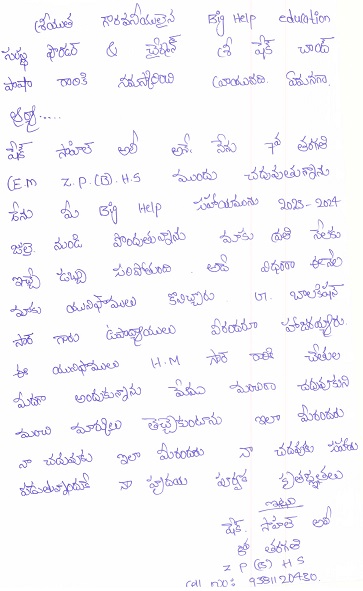 శ్రీయుత గౌరవనీయులైన Big Help education
సంస్థ ఫౌండర్ & చైర్మన్ శ్రీ షేక్ చాంద్
పాషా గారికి నమస్కరించి వ్రాయునది ఏమనగా
ఆర్య.....
షేక్ సాహిల్ అలీ అనే నేను 7వ తరగతి
(E.M Z.P.(B).H.S ముందు చదువుతున్నాను
నేను మీ Big Help సహాయమును 2023-2024
జులై నుండి పొందుతున్నాను మాకు ప్రతి నెలకు
ఇచ్చే డబ్బు సరిపోతుంది. అదే విధంగా ఈనెల
మాకు యునిఫాములు కొనిచ్చారు. బాలకిషన్
సార్ గారు ఉపాధ్యాయులు వీరందరూ హాజరయ్యారు.
ఈ యునిఫాములు H.M సార్ గారి చేతుల
మీదగా అందుకున్నాను మేము మంచిగా చదువుకుని
మంచి మార్కులు తెచ్చుకుంటాను ఇలా మీరందరు
నా చదువుకు ఇలా మీరందరు నా చదువుకు సహాయ
పడుతున్నందుకే నా హృదయ పూర్వక కృతజ్ఞతలు
ఇట్లు
షేక్. సాహిల్ అలీ
తరగతి
Z P (B) H S
Cell no: 9381120480.